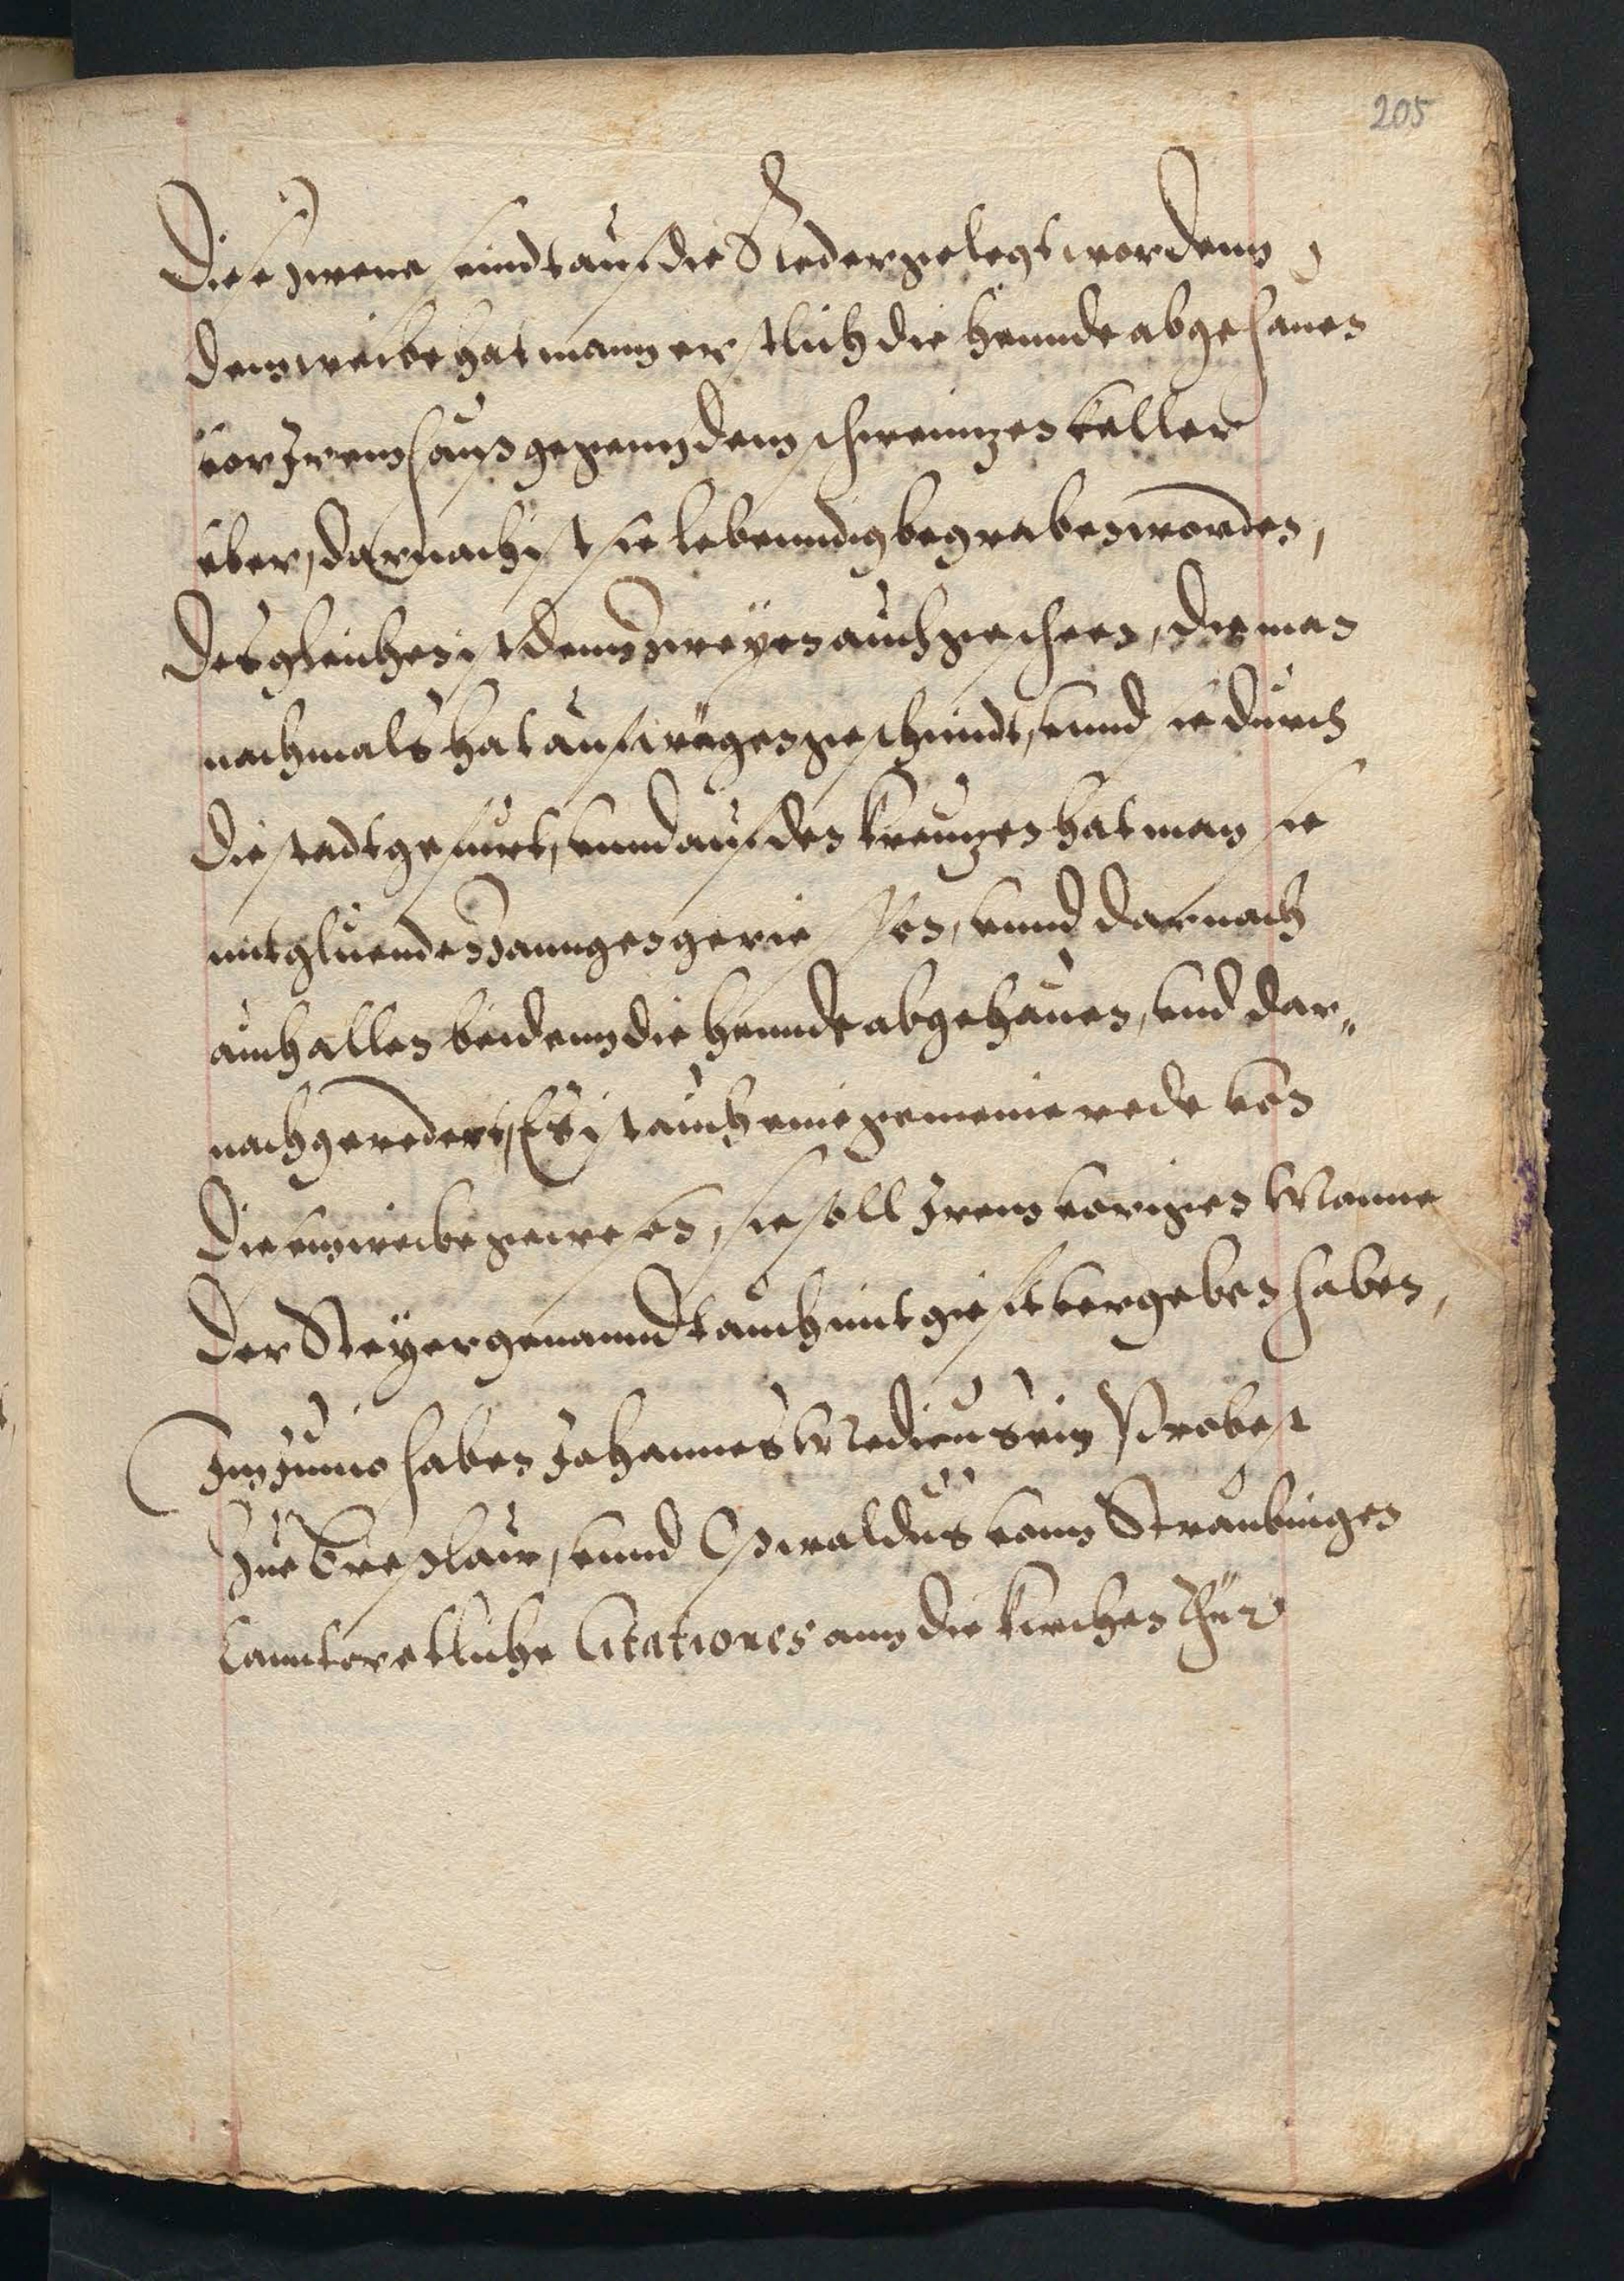 205
Diese zwene sindt auf die Reder gelegt wordenn,
dem weibe hat mann erstlich die hennde abgehauen
vor Irem hauß gegenn dem schweinzen keller
über, darnach ist sie lebenndig begraben worden,
Desgleichen ist denn zweyen auch geschehen, die man
nachmals hat auf wägen geschmidt, unnd sie durch
die stadt gefurt, unnd auf den kreuzen hat man sie
mit gluenden zanngen gerissen, unnd darnach
auch allen beidenn die hennde abgehauen, und dar„
nach geredert, Es ist auch eine gemeine rede von
diesem weibe gewesen, sie soll Irem vorigen Manne
der Steyer genanndt auch mit gifft vergeben haben,
Im Junio haben Johannes Medicus ein Probest
zue Breslaw, unnd Oswaldus vonn Straubingen
Citationes ann die kirchen Thür